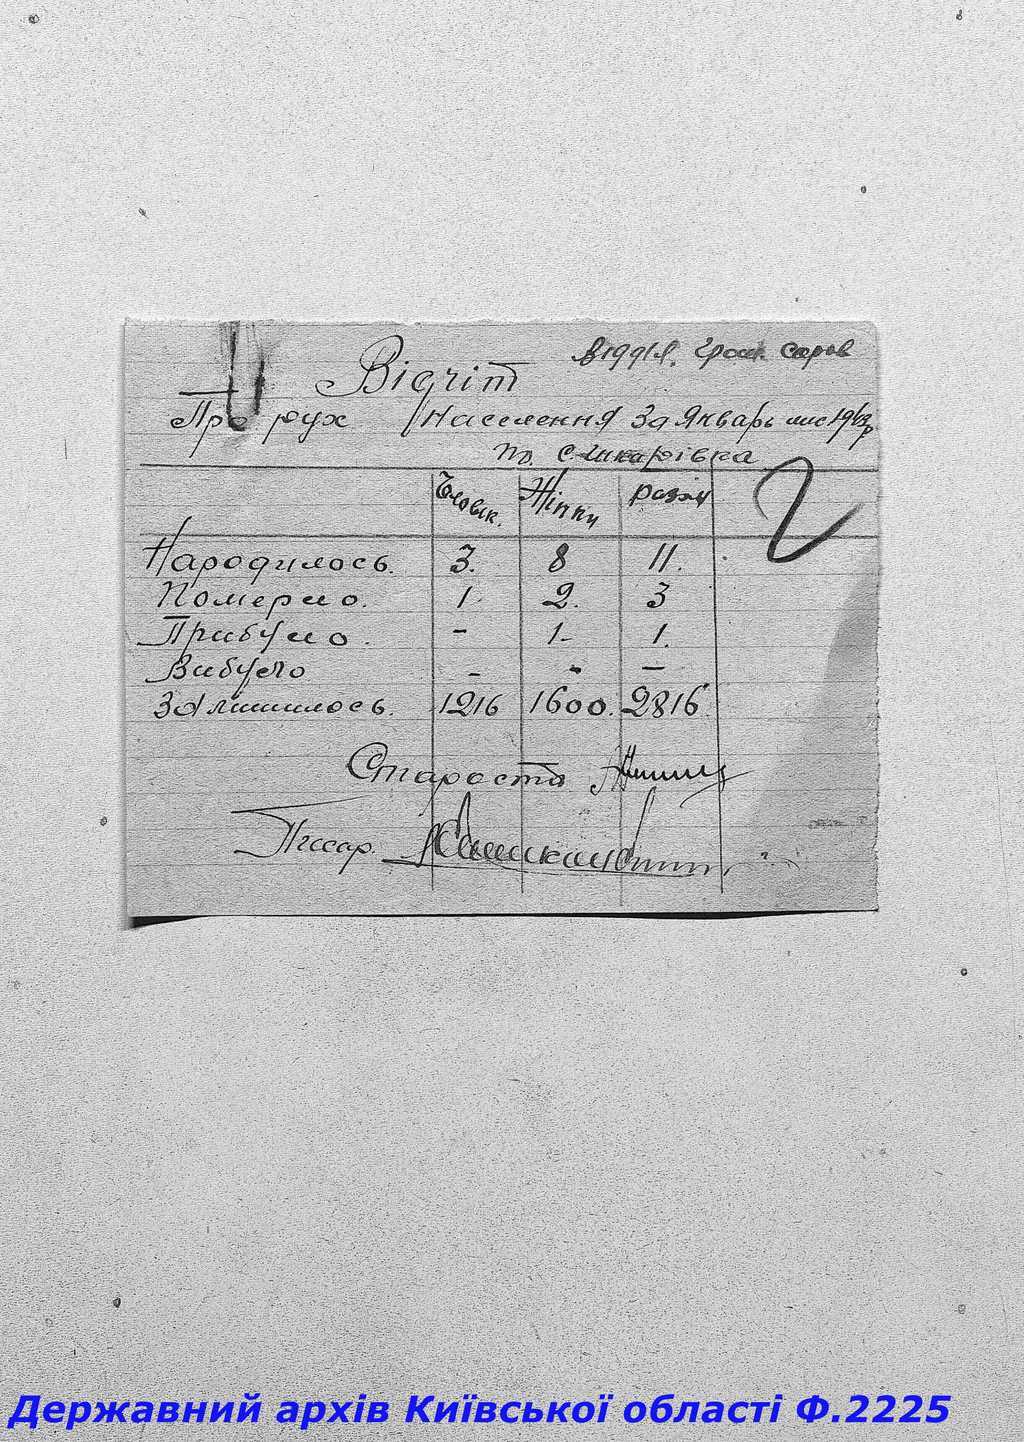 Відчіт
Про рух Населення За Январь 1943р
по с. Шкарівка
Чоловік. Жінки разом
2
Народилось. 3. 8 11.
Померло. 1. 2. 3
Прибуло. - 1- 1.
Вибуло - - -
Залишилось. 1216 1600. 2816
Староста
Писар.
Державний архів Київської області Ф.2225